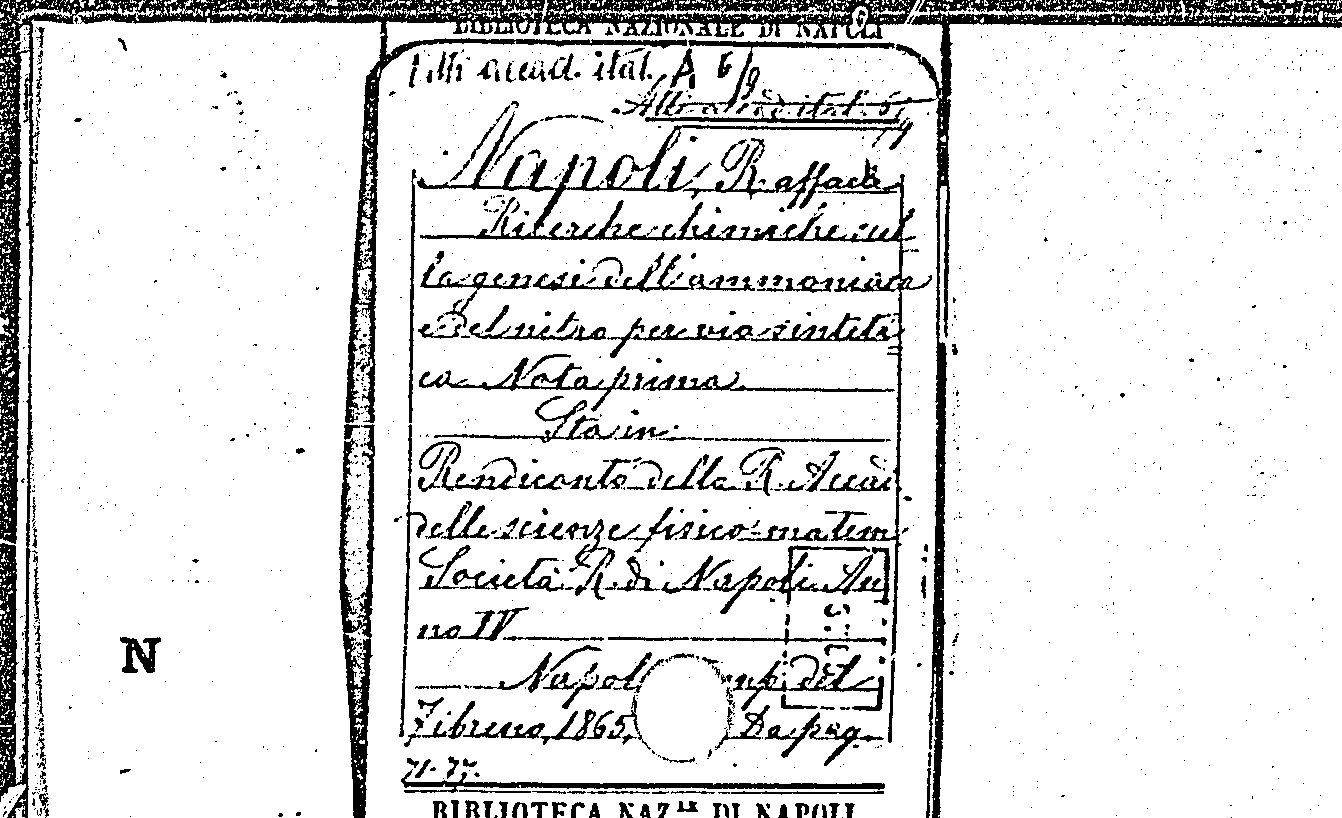 BIBLIOTECA NAZIONALE DI NAPOLI
Atti accad. ital. A 6/9
Atti accad ital. 6/9
Napoli, Raffaele
Ricerche chimiche sul
la genesi dell'ammoniaca
e del nitro per via sinteti
ca Nota prima
Sta in:
Rendiconto della R. Accad
delle scienze fisico-matem
Società R. di Napoli An
no IV
Napoli del
Fibreno, 1865, Da pag.
71-77.
BIBLIOTECA NAZ.LE DI NAPOLI
N